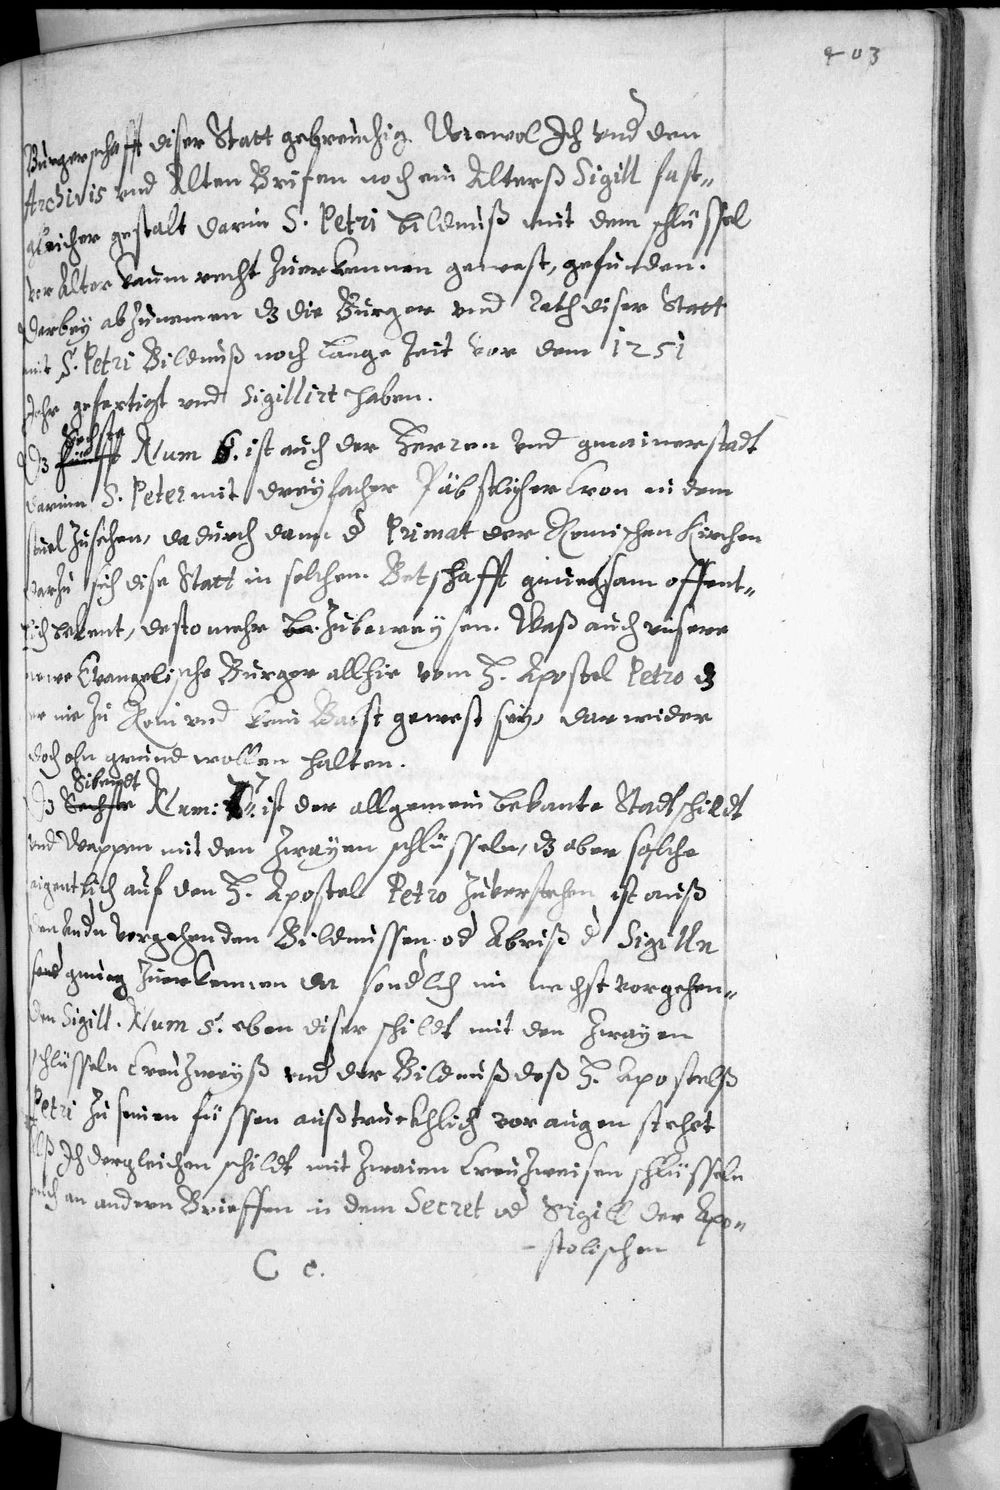 403
Burgerschafft diser Statt gebreuchig. Wiewol Ich vnd den
Archivis vnd Alten Brifen noch ein Alterß Sigill fast„
gleicher gestalt darin S. Petri bildnuß mit dem schlüssel
vor Alter kaum recht zuerkennen gewest, gefunden.
Darbey abzunemen dz die Burger vnd rath diser Statt
mit S. Petri Bildnuß noch lange Zeit vor dem 1251
Jahr gefertigt vnd Sigillirt haben.
Sechste
Dz fünfft Num 6. ist auch der Herren vnd gmainer stadt
darinn S. Peter mit dreyfacher Päbstlicher Cron in dem
stuel zusehen, dadurch dann d Primat der Römischen Kirchen
darzu sich dise Statt in solchem Betschafft gnuegsam offent„
lich bekent, desto mehr be. zubeweysen. Waß auch vnsere
newe Evangelische Burger allhie vom H. Apostel Petro dz
er nie zu Rom vnd kein Babst gewest sey, darwider
doch ohn grund wollen halten.
Sibendt
Dz Sechste Num: 7. ist der allgemein bekante Stadtschildt
vnd Wappen mit den Zwayen schlüsseln, dz aber solche
eigentlich auf den H. Apostel Petro zuverstehen ist auß
den andn vorgehenden Bildnussen od Abriß d Sigilln
gnueg zuerkennen da sondlich im nechst vorgehen„
den Sigill. Num 5. eben diser schildt mit den zwayen
schlüsseln Creuzweyß vnd der Bildnuß deß H. Apostelß
Petri zu seinen füssen außtruckhlich vor augen stehet
Alß Ich dergleichen schildt mit zwaien Creuzweisen schlüsseln
auch an andern Brieffen in dem Secret od Sigill der Apo„
C c. -stolischen